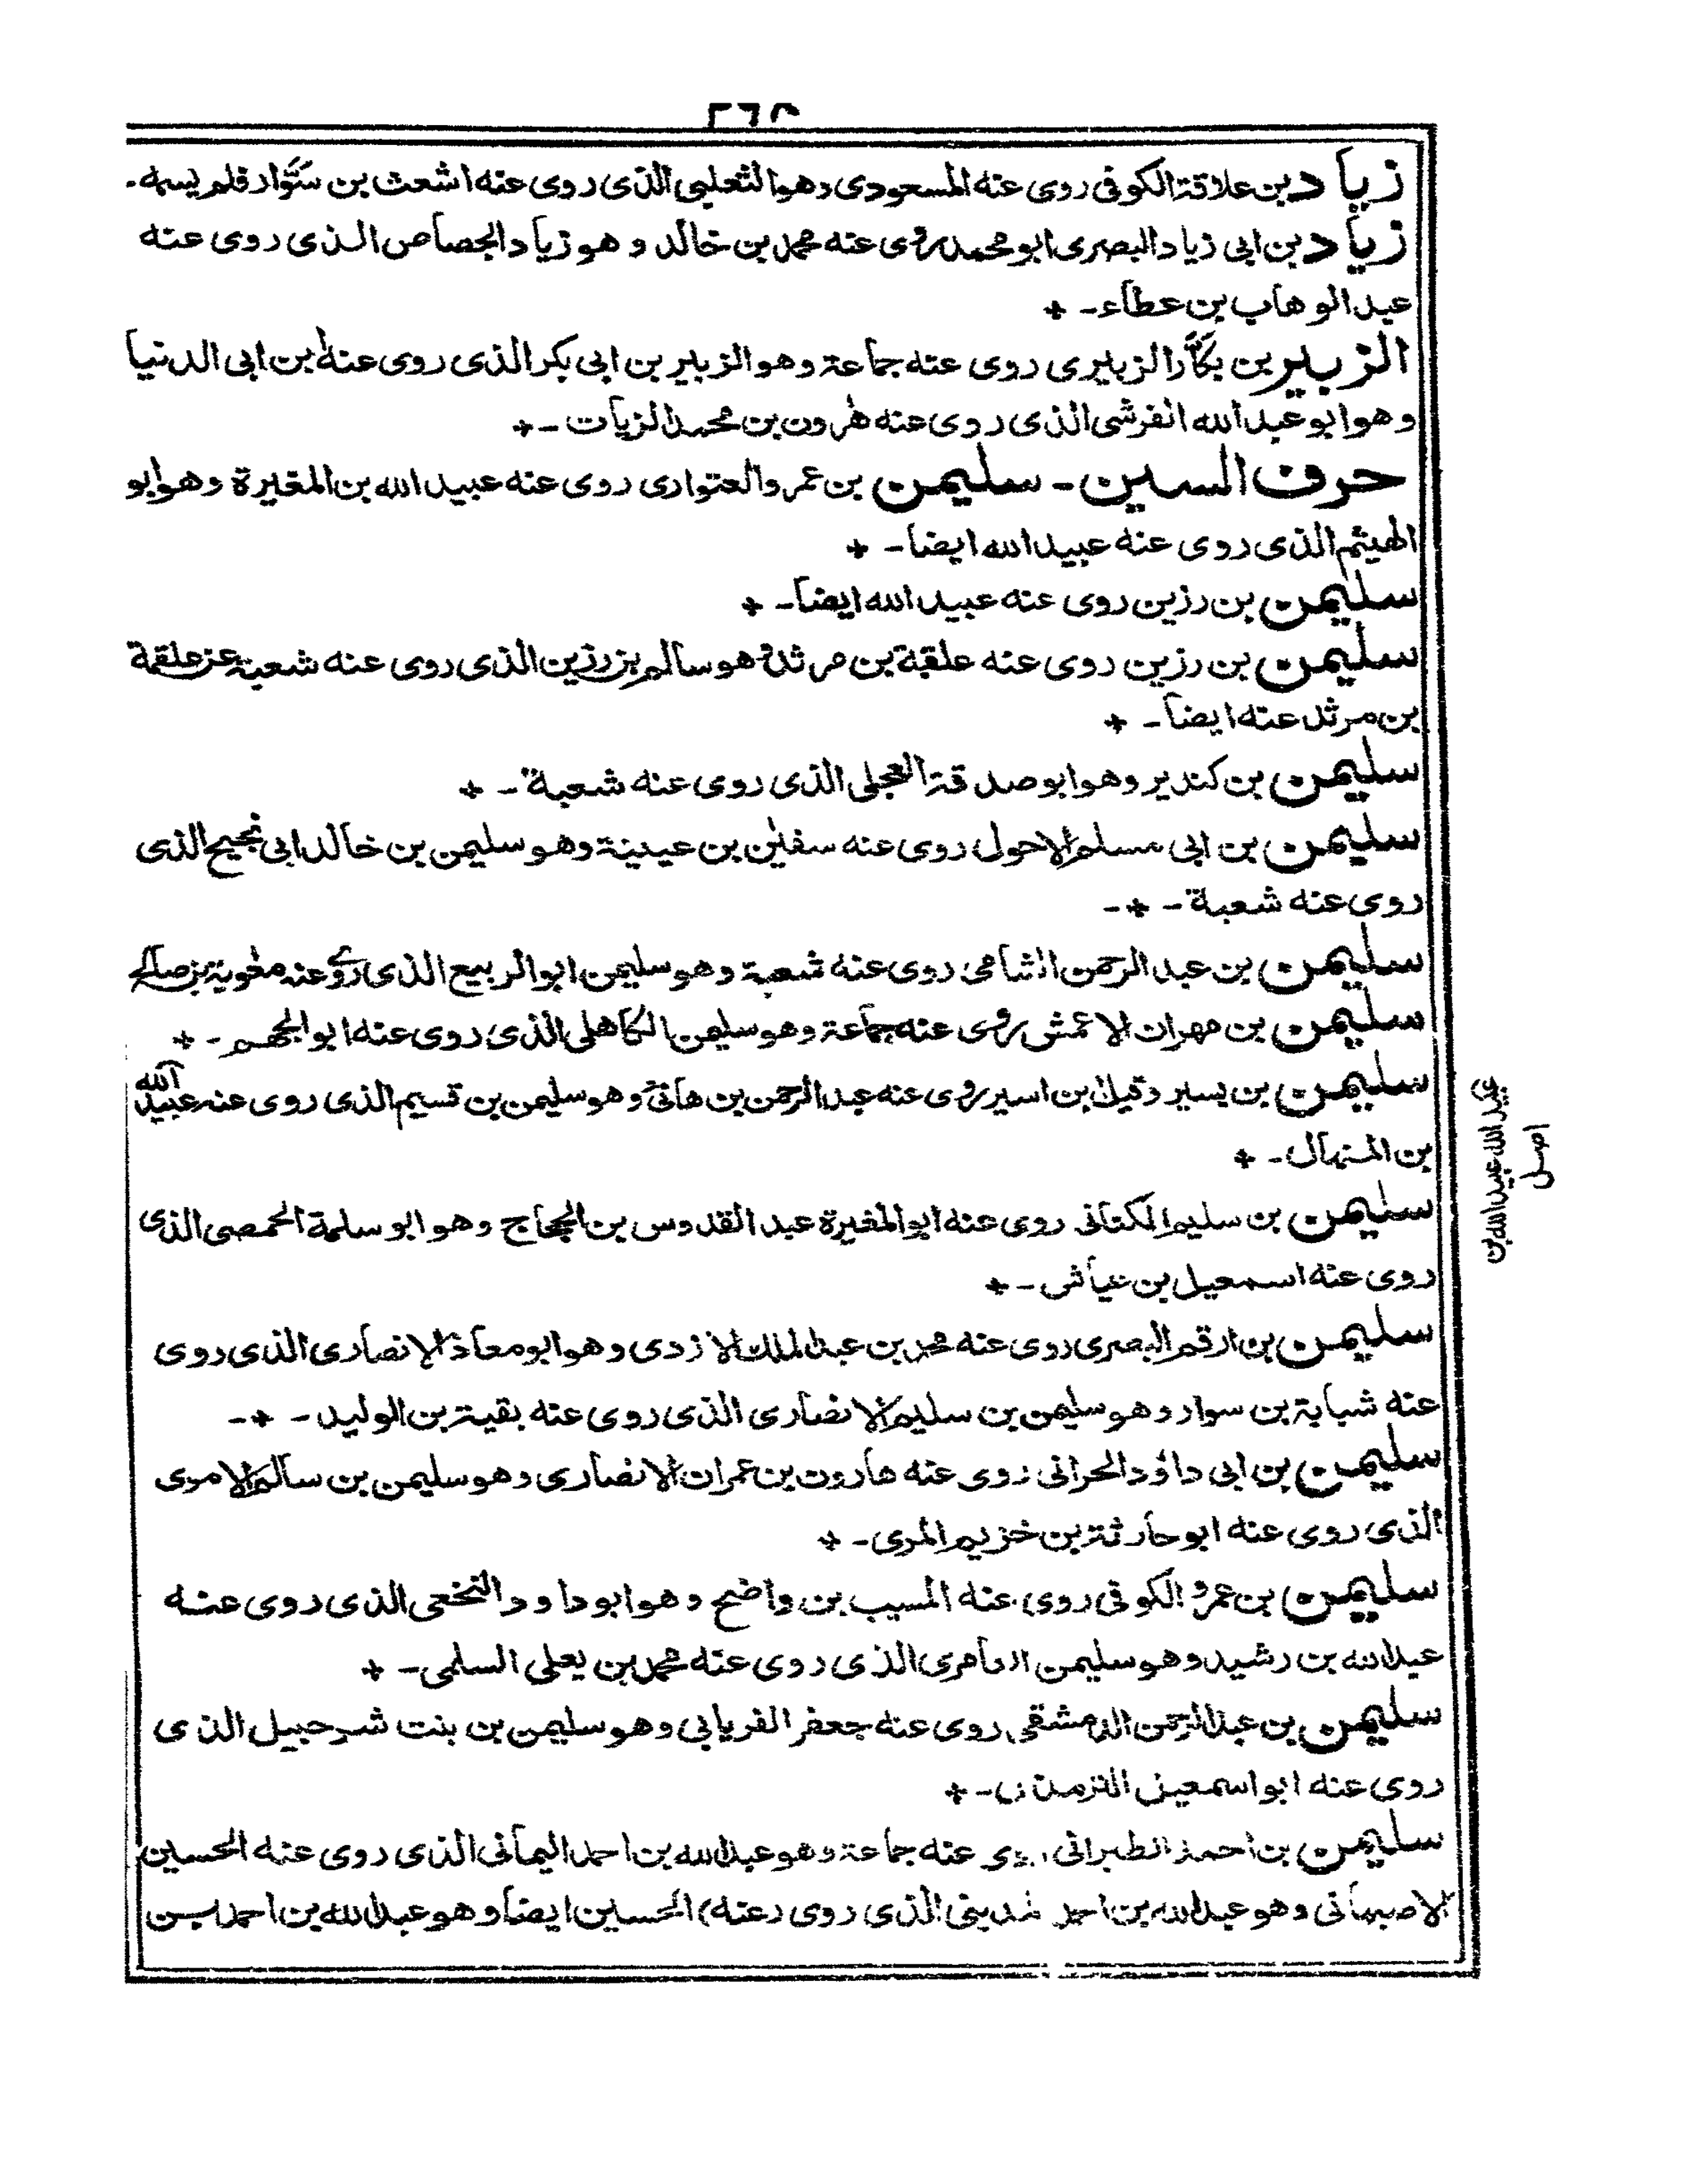 زياد بن علاقة الكوفى روى عنه المسعودى وهو الثعلبى الذى روى عنه اشعث بن سوّار فلم يسمه۔
زياد بن ابى زياد البصرى ابو محمد روى عنه محمد بن خالد وهو زياد الجصاص الذى روى عنه
عبد الوهاب بن عطاء۔ +
الزبير بن بكّار الزبيرى روى عنه جماعة وهو الزبير بن ابى بكر الذى روى عنه ابن ابى الدنيا
وهو ابو عبد الله القرشى الذى روى عنه هٰرون بن محمد الزيات۔ +
حرف السين۔ سليمن بن عمرو العتوارى روى عنه عبيد الله بن المغيرة وهو ابو
الهيثم الذى روى عنه عبيد الله ايضا۔ +
سليمن بن رزين روى عنه عبيد الله ايضا۔ +
سليمن بن رزين روى عنه علقبة بن مرثد وهو سالم بن رزين الذى روى عنه شعبة عن علقمة
بن مرثد عنه ايضا۔ +
سليمن بن كندير وهو ابو صدقة العجلى الذى روى عنه شعبة۔ +
سليمن بن ابى مسلم الاحول روى عنه سفيٰن بن عيينة وهو سليمن بن خالد ابى نجيح الذى
روى عنه شعبة۔ +۔
سليمن بن عبد الرحمن الشامى روى عنه شعبة وهو سليمن ابو الربيع الذى روى عنه معٰوية بن صالح
سليمن بن مهران الاعمش روى عنه جماعة وهو سليمن الكاهلى الذى روى عنه ابو الجهم۔ +
سليمن بن يسير وقيل بن اسير روى عنه عبد الرحمن بن هانئ وهو سليمن بن قسيم الذى روى عنه عبيد الله
بن المنهال۔ +
سليمن بن سليم الكتانى روى عنه ابو المغيرة عبد القدوس بن الحجاج وهو ابو سلمة الحمصى الذى
روى عنه اسمعيل بن عياش۔ +
سليمن بن ارقم البصرى روى عنه محمد بن عبد الملك الازدى وهو ابو معاذ الانصارى الذى روى
عنه شبابة بن سوار وهو سليمن بن سليم الانصارى الذى روى عنه بقية بن الوليد۔ +۔
سليمن بن ابى داؤد الحرانى روى عنه هارون بن عمران الانصارى وهو سليمن بن سالم الاموى
الذى روى عنه ابو حارثة بن خزيم المرى۔ +
سليمن بن عمرو الكوفى روى عنه المسيب بن واضح وهو ابو داود النخعى الذى روى عنه
عبد الله بن رشيد وهو سليمن العامرى الذى روى عنه محمد بن يعلى السلمى۔ +
سليمن بن عبد الرحمن الدمشقى روى عنه جعفر الفريابى وهو سليمن بن بنت شرحبيل الذى
روى عنه ابو اسمعيل الترمذى۔ +
سليمن بن احمد الطبرانى روى عنه جماعة وهو عبد الله بن احمد اليمانى الذى روى عنه الحسين
الاصبهانى وهو عبد الله بن احمد المدينى الذى روى (عنه) الحسين ايضا وهو عبد الله بن احمد بن
عبيد الله عبيد الله بن
اصل